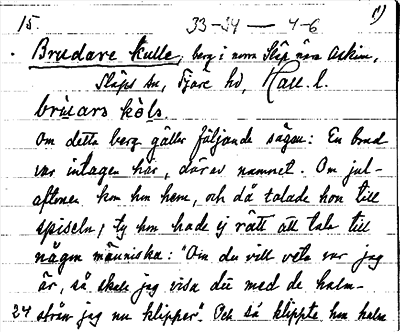 15. 33-34 — 4-6 1)
Brudare kulle, berg i norra Släp nära Askim,
Släps sn, Fjäre hd, Hall. l.
brùars kòls
Om detta berg gäller följande sägen: En brud
var intagen här, därav namnet. Om jul-
aftonen kom hon hem, och då talade hon till
spiseln, ty hon hade ej rätt att tala till
någon människa: "Om du vill veta var jag
är, så skall jag visa dig med de halm-
24 strån jag nu klipper". Och så klippte hon halm